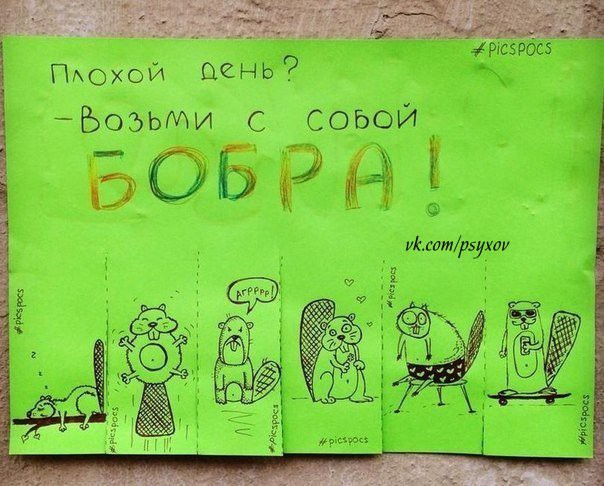 #picspocs
Плохой день?
-Возьми с собой
БОБРА!
vk.com/psyxov
#picspocs
z z
#picspocs
Агрррр!
#picspocs
#picspocs
#picspocs
#picspocs